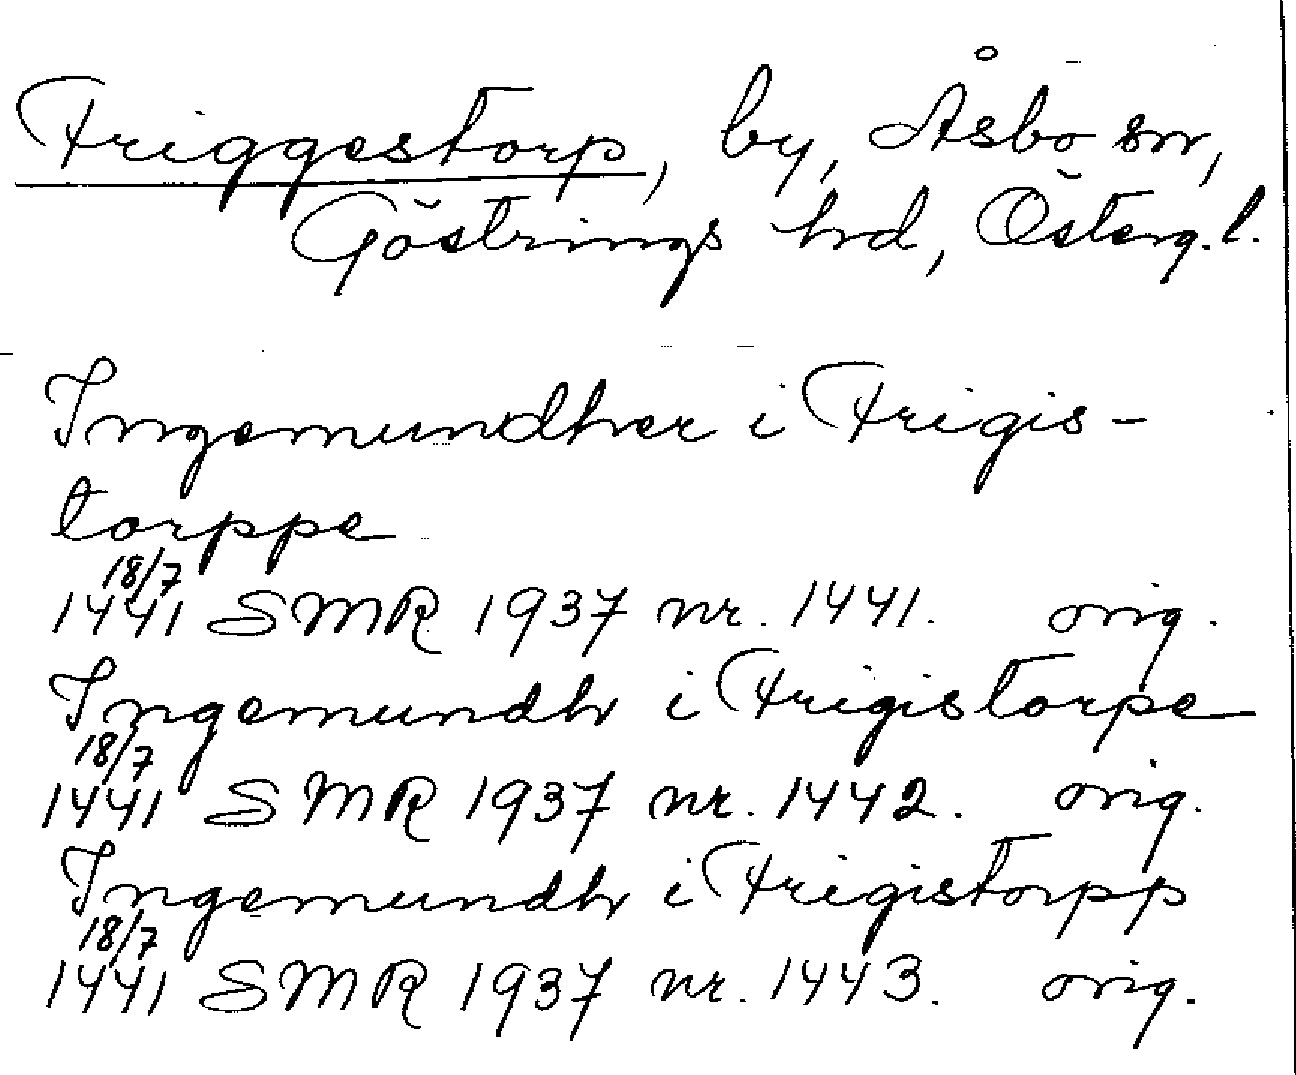 Friggestorp, by, Åsbo sn,
Göstrings hd, Österg. l.
Ingemundher i Frigis-
torppe
18/7
1441 SMR 1937 nr. 1441. orig.
Ingemundh i Frigistorpe
18/7
1441 SMR 1937 nr. 1442. orig.
Ingemundh i Frigistorpp
18/7
1441 SMR 1937 nr. 1443. orig.